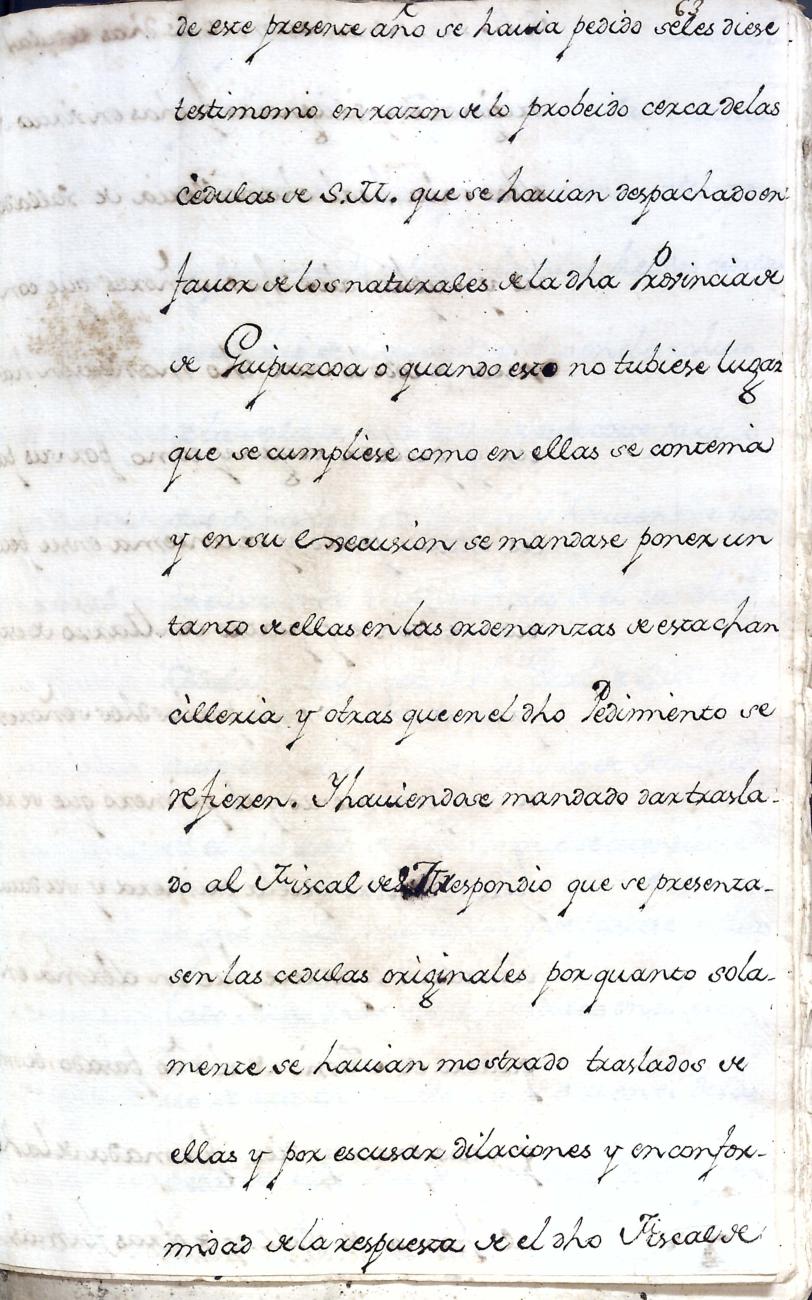 63
de este presente año se havia pedido seles diese
testimonio en razon de lo probeido cerca delas
cedulas de S.M. que se havian despachado en
favor de los naturales de la dha Provincia de
de Guipuzcoa ó quando esto no tubiese lugar
que se cumpliese como en ellas se contenia
y en su execusion se mandase poner un
tanto de ellas en las ordenanzas de esta chan
cilleria y otras que en el dho Pedimiento se
refieren. Y haviendose mandado dar trasla-
do al Fiscal de S.M. respondio que se presenta-
sen las cedulas originales por quanto sola-
mente se havian mostrado traslados de
ellas y por escusar dilaciones y en confor-
midad de la respuesta de el dho Fiscal de